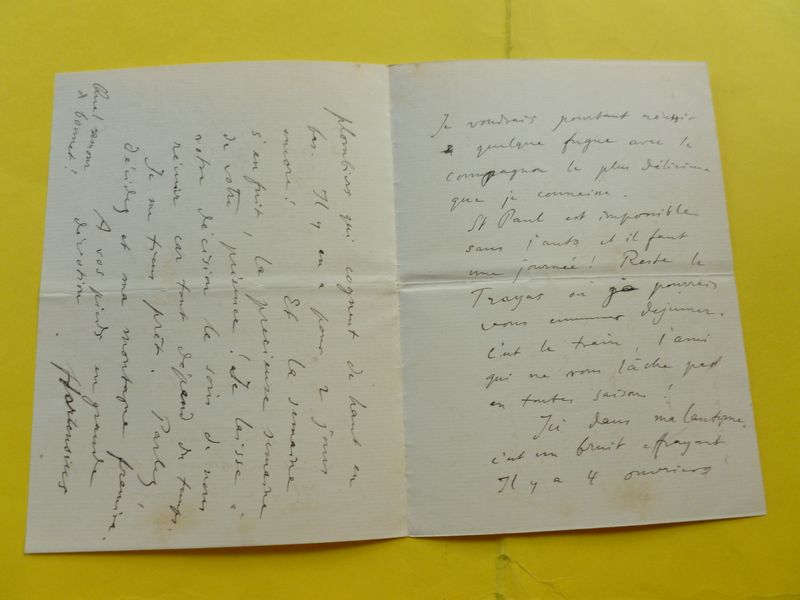 Je voudrais pourtant réussir
à quelque fugue avec le
compagnon le plus délicieux
que je connaisse.
St Paul est impossible
sans l'auto et il faut
une journée! Reste le
Trayas où je pourrais
vous déjeuner.
C'est le train, l'ami
qui ne vous lâche pas
en toutes saisons!
Ici dans ma lanterne,
c'est un bruit effrayant
Il y a 4 ouvriers
plombiers qui cognent de haut en
bas. Il y en a pour 2 jours
encore! Et la semaine
s'enfuit, la précieuse semaine
de votre présence! Je laisse à
votre décision le soin de nous
réunir car tout dépend du temps.
Je me tiens prêt. Parlez,
décidez et ma montagne frémira.
A vos pieds en grande
dévotion.
Hortensius
Quel
à bonnet!